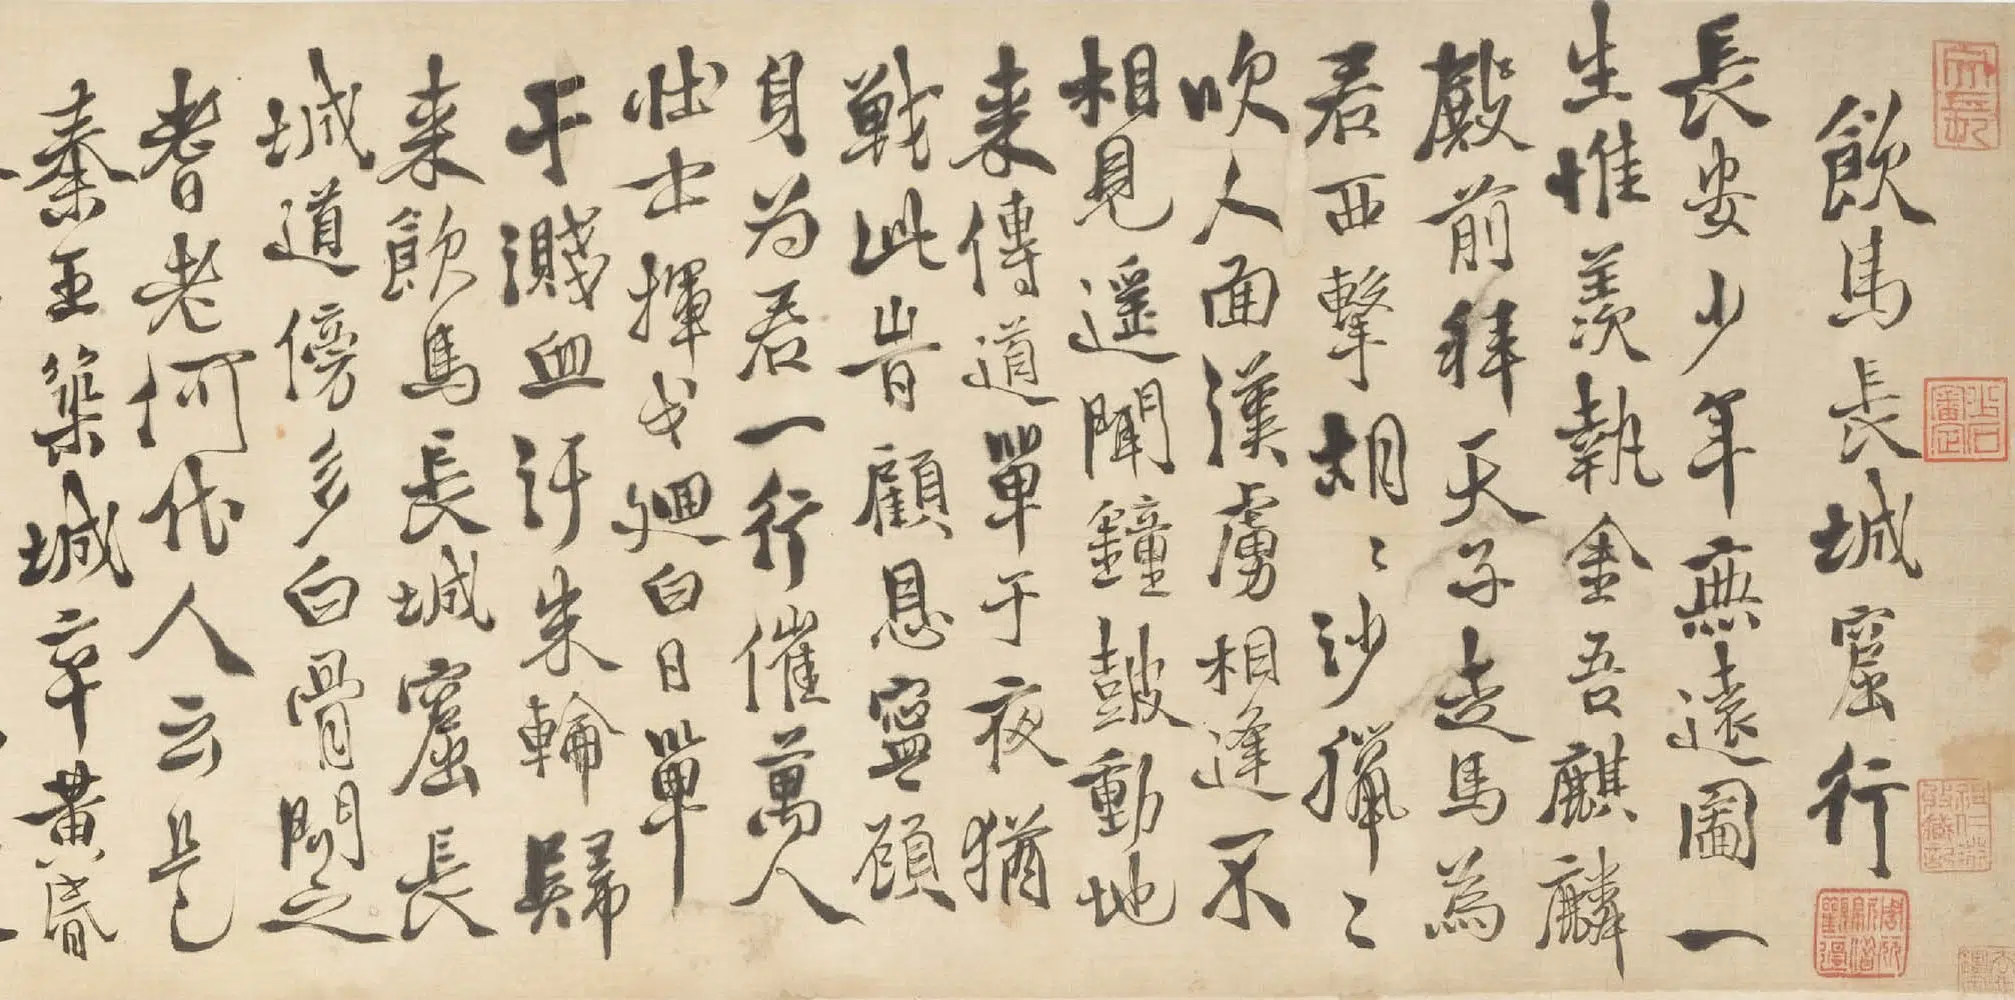 飲馬長城窟行
長安少年無遠圖一
生惟羨執金吾麒麟
殿前拜天子走馬為
君西擊胡〻沙獵〻
吹人面漢虜相逢不
相見遥聞鐘鼓動地
来傳道單于夜猶
戰此時顧恩寧顧
身為君一行催萬人
壮士揮戈廻白日單
于濺血汙朱輪歸
来飲馬長城窟長
城道傍多白骨問之
耆老何代人云是
秦王築城卒黄昏